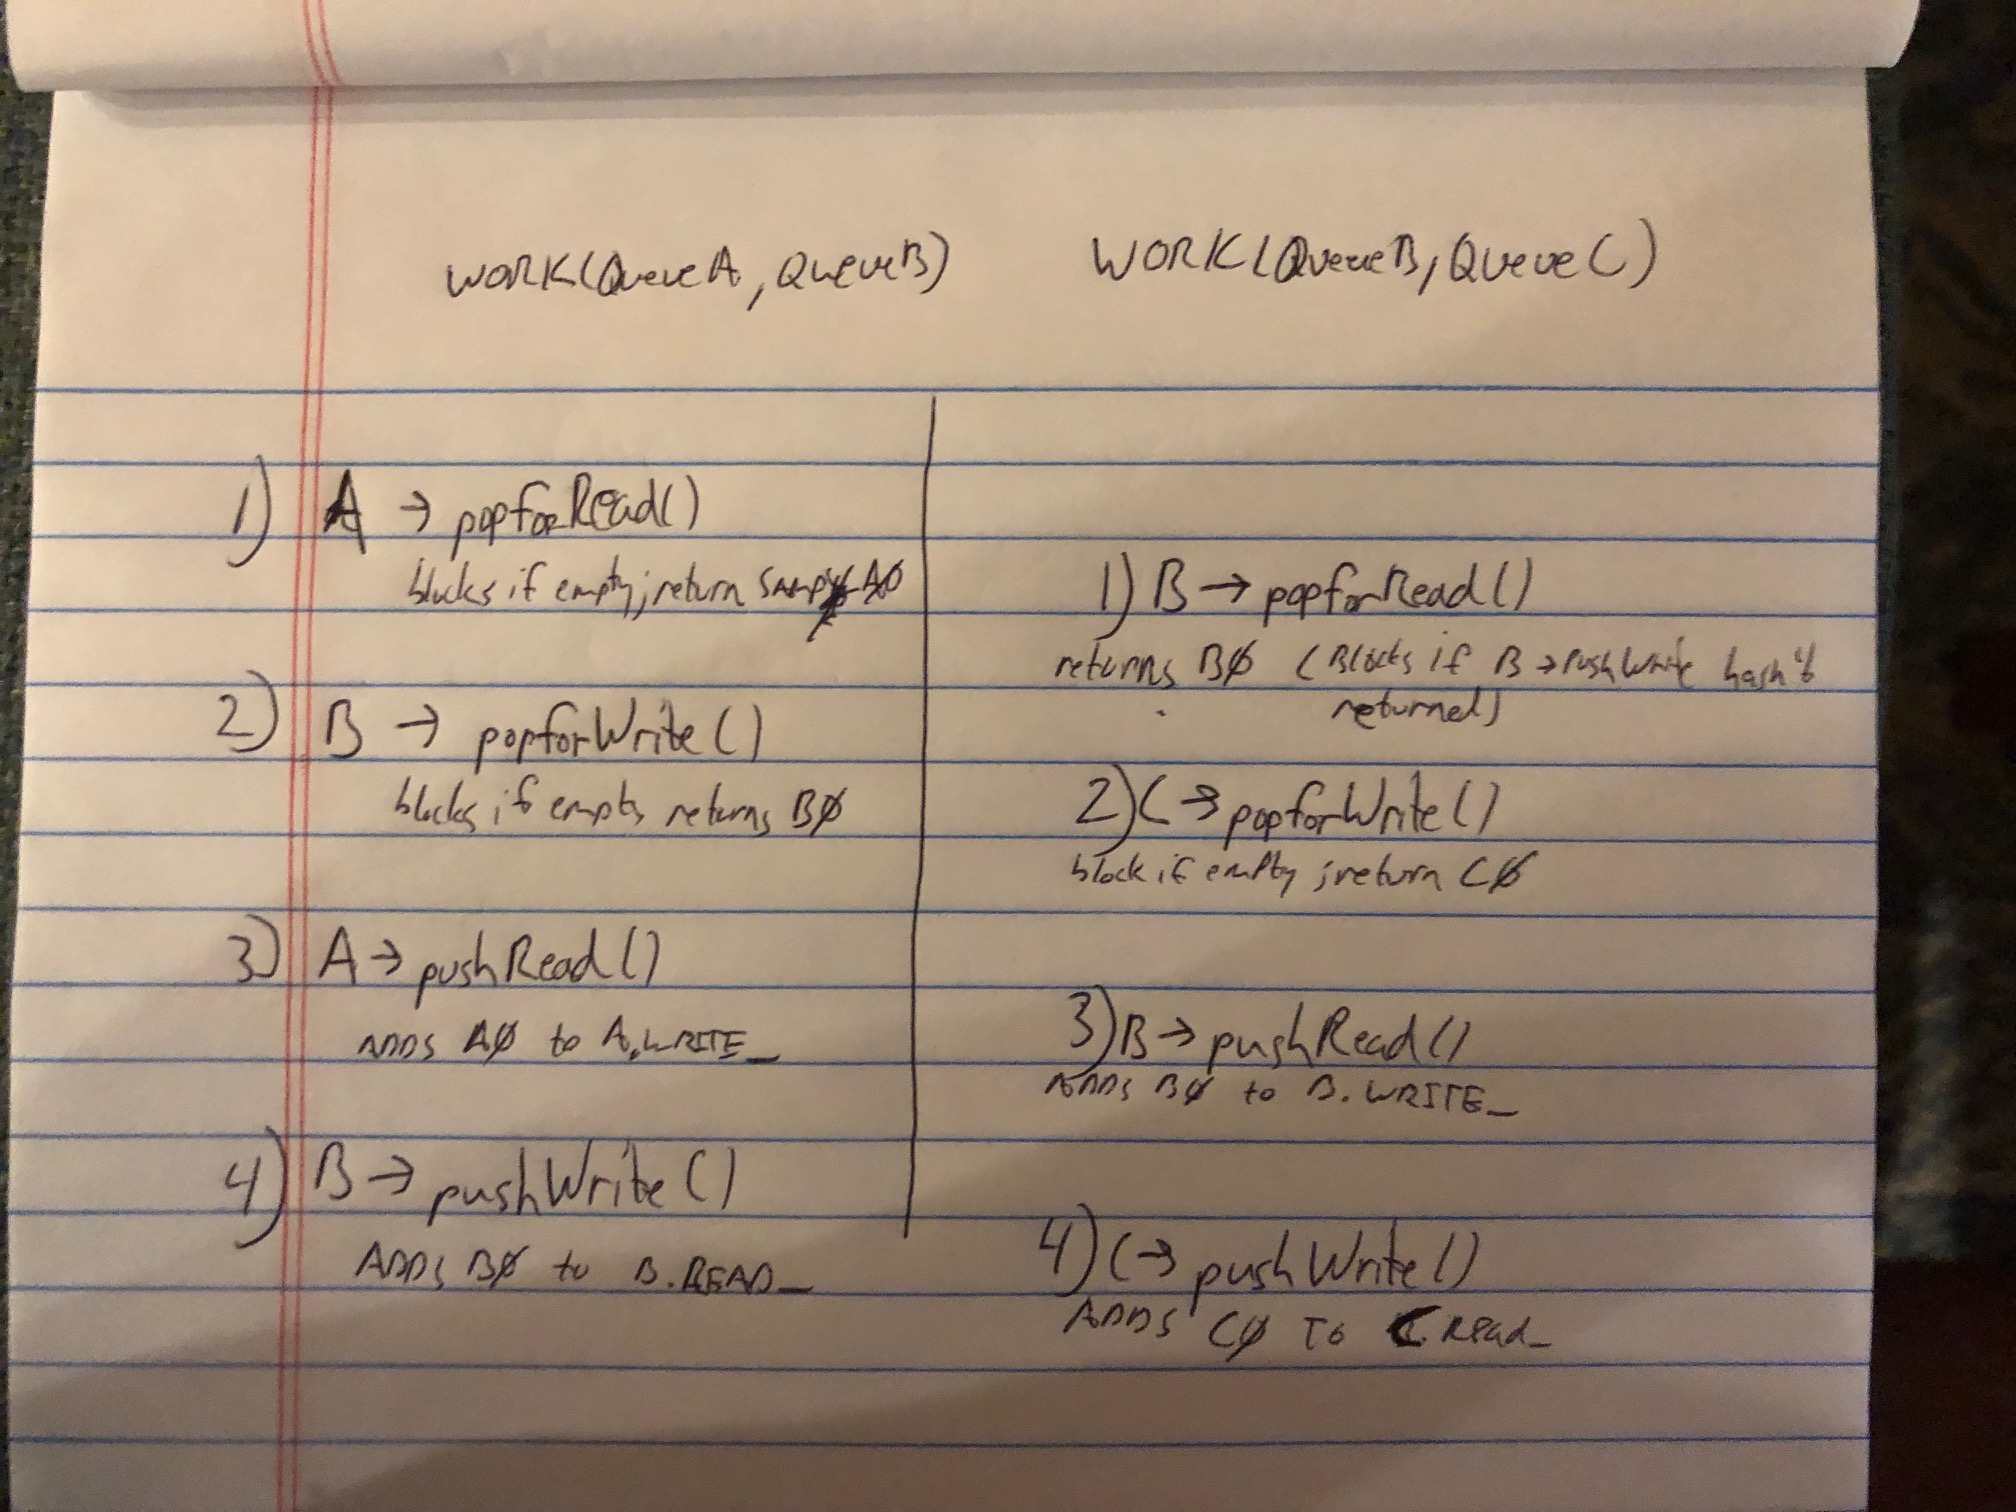 WORK(QueueA, QueueB)
1) A → popforRead()
blocks if empty; return A0
2) B → popforWrite()
blocks if empty returns B0
3) A → pushRead()
ADDS A0 to A.WRITE_
4) B → pushWrite()
ADDS B0 to B.READ_
WORK(QueueB, QueueC)
1) B → popforRead()
returns B0 (Blocks if B → pushWrite hasn't
returned)
2) C → popforWrite()
block if empty; return C0
3) B → pushRead()
ADDS B0 to B.WRITE_
4) C → pushWrite()
ADDS C0 TO C.Read_